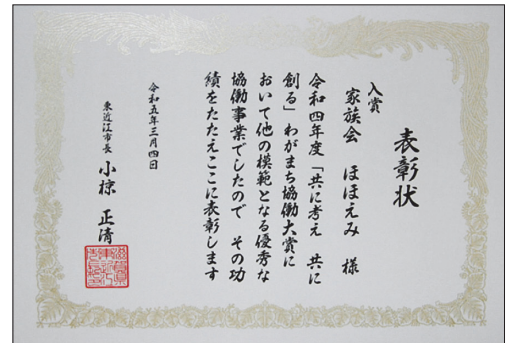 表彰状
入賞
家族会 ほほえみ 様
令和四年度「共に考え 共に
創る」わがまち協働大賞に
おいて他の模範となる優秀な
協働事業でしたので その功
績をたたえここに表彰します
令和五年三月四日
東近江市長 小椋 正清